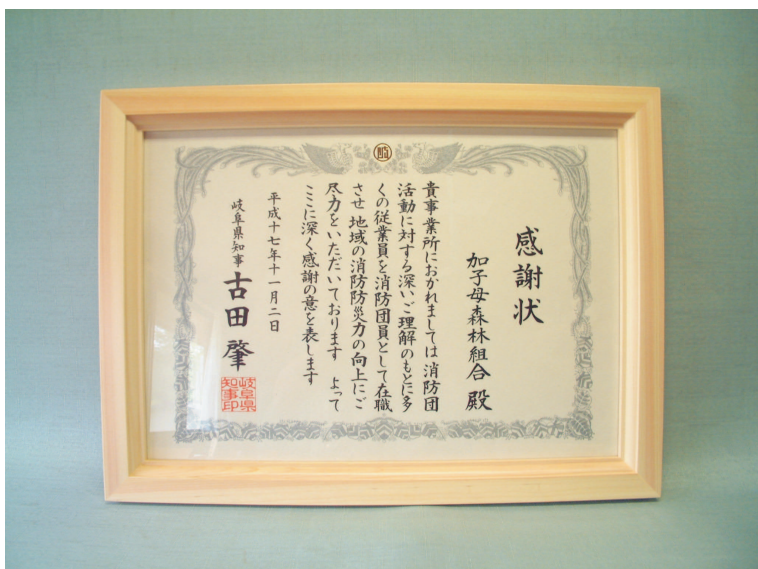 感謝状
加子母森林組合 殿
貴事業所におかれましては消防団
活動に対する深いご理解のもとに多
くの従業員を消防団員として在職
させ 地域の消防防災力の向上にご
尽力をいただいております よって
ここに深く感謝の意を表します
平成十七年十一月二日
岐阜県知事 古田 肇
岐阜県
知事印